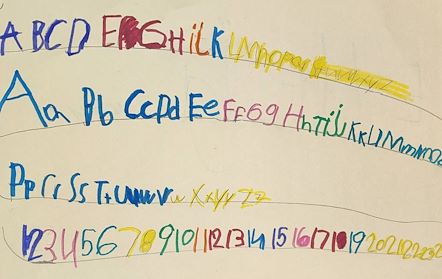 A B C D E F G H i L K L M
A a B b C c D d E e F F G g H h I i J j K k L l M m
P p r r S s T t U u V v w X x Y y Z z
1 2 3 4 5 6 7 8 9 10 11 12 13 14 15 16 17 18 19 20 21 22 23